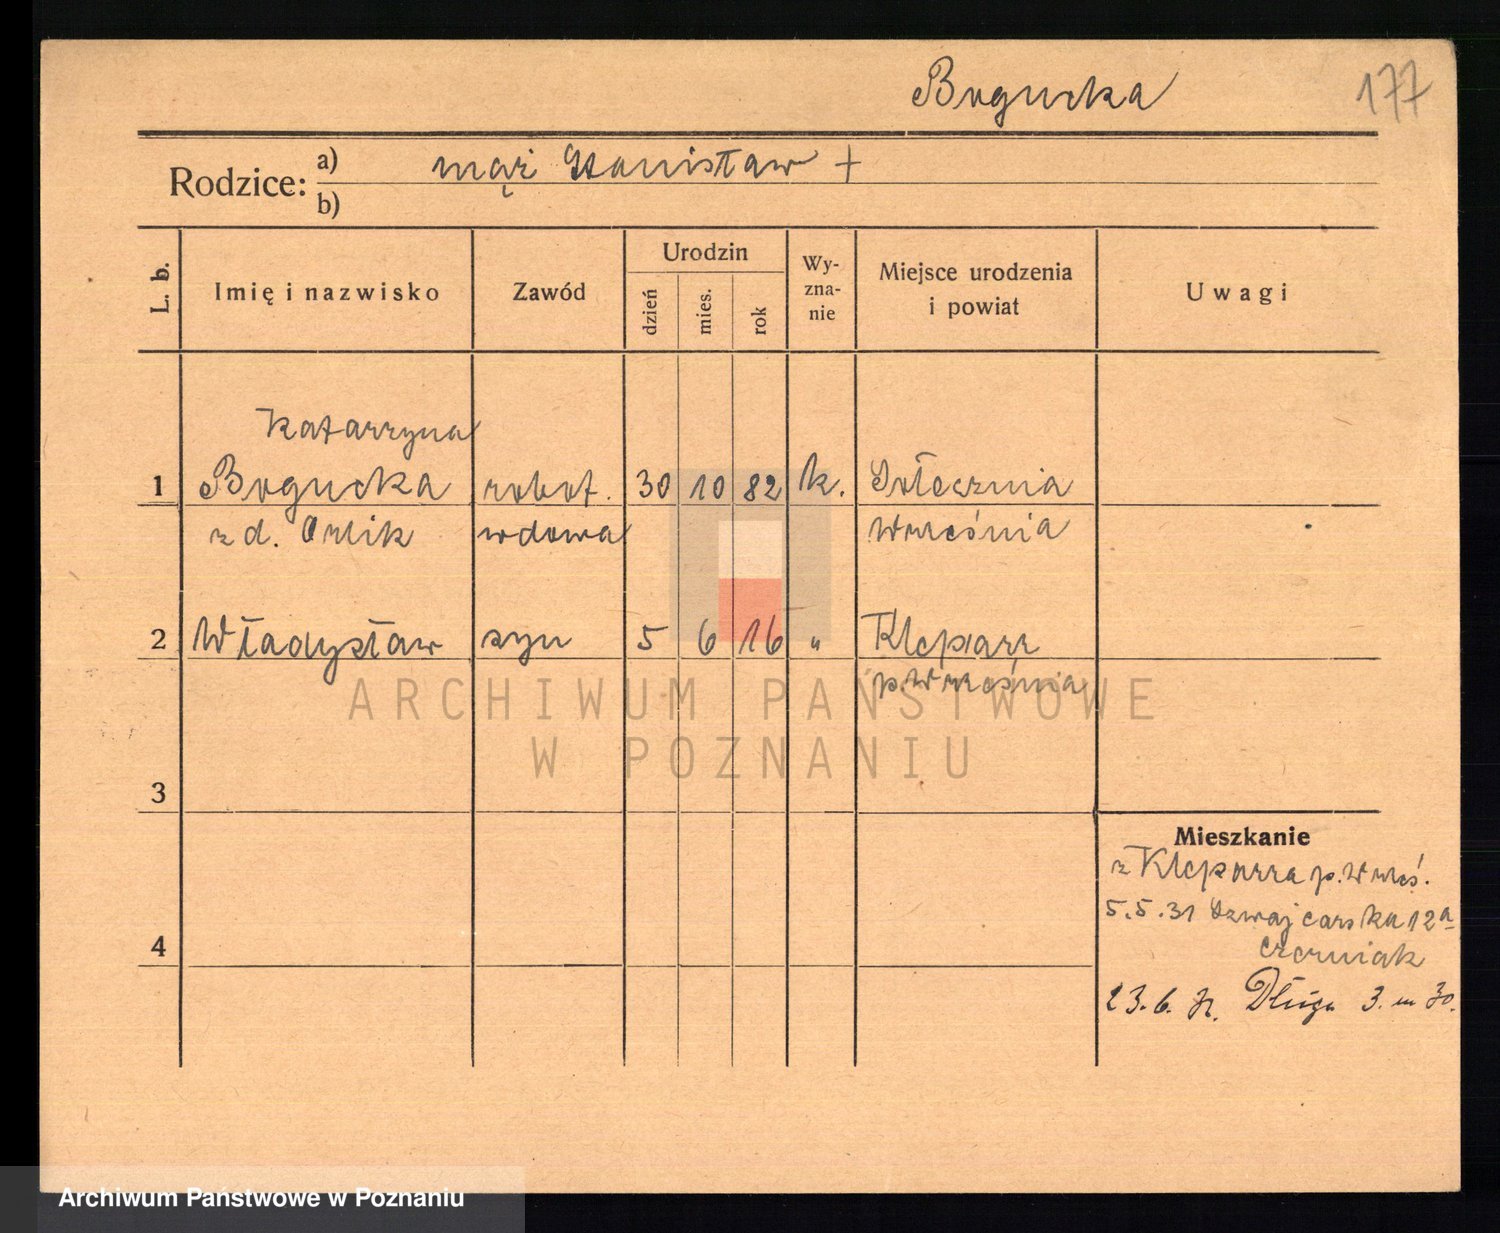 Bogucka 177
Rodzice: a) mąż Stanisław +
b)
L. b. Imię i nazwisko Zawód Urodzin dzień mies. rok Wy-zna-nie Miejsce urodzenia i powiat Uwagi
Katarzyna
1 Bogucka robot. 30 10 82 k. Sołecznia
z d. Orlik wdowa Września
2 Władysław syn 5 6 16 " Kleparz
p. Września
ARCHIWUM PAŃSTWOWE
W POZNANIU
3
Mieszkanie
z Kleparza p. Wrześ.
5.5.31 Szwajcarska 12a
4
Czerniak
23.6. Długa 3. m 30.
Archiwum Państwowe w Poznaniu